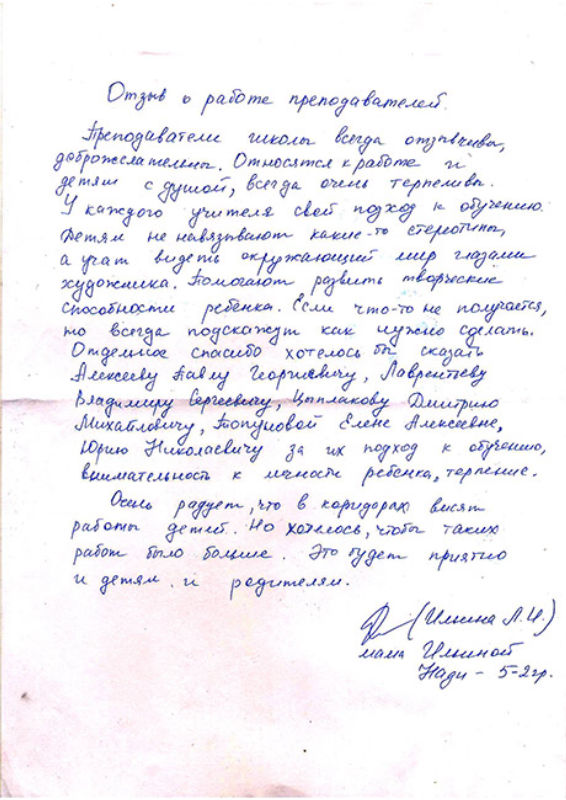 Отзыв о работе преподавателей.
Преподаватели школы всегда отзывчивы,
доброжелательны. Относятся к работе и
детям с душой, всегда очень терпеливы.
У каждого учителя свой подход к обучению.
Детям не навязывают какие-то стереотипы,
а учат видеть окружающий мир глазами
художника. Помогают развить творческие
способности ребенка. Если что-то не получается,
то всегда подскажут как нужно сделать.
Отдельное спасибо хотелось бы сказать
Алексееву Павлу Георгиевичу, Лаврентьеву
Владимиру Сергеевичу, Цыплакову Дмитрию
Михайловичу, Елене Алексеевне,
Юрию Николаевичу за их подход к обучению,
внимательность к личности ребенка, терпение.
Очень радует, что в коридорах висят
работы детей. Но хотелось, чтобы таких
работ было больше. Это будет приятно
и детям и родителям.
(Ильина Л.И.)
мама Ильиной
Нади - 5-2гр.